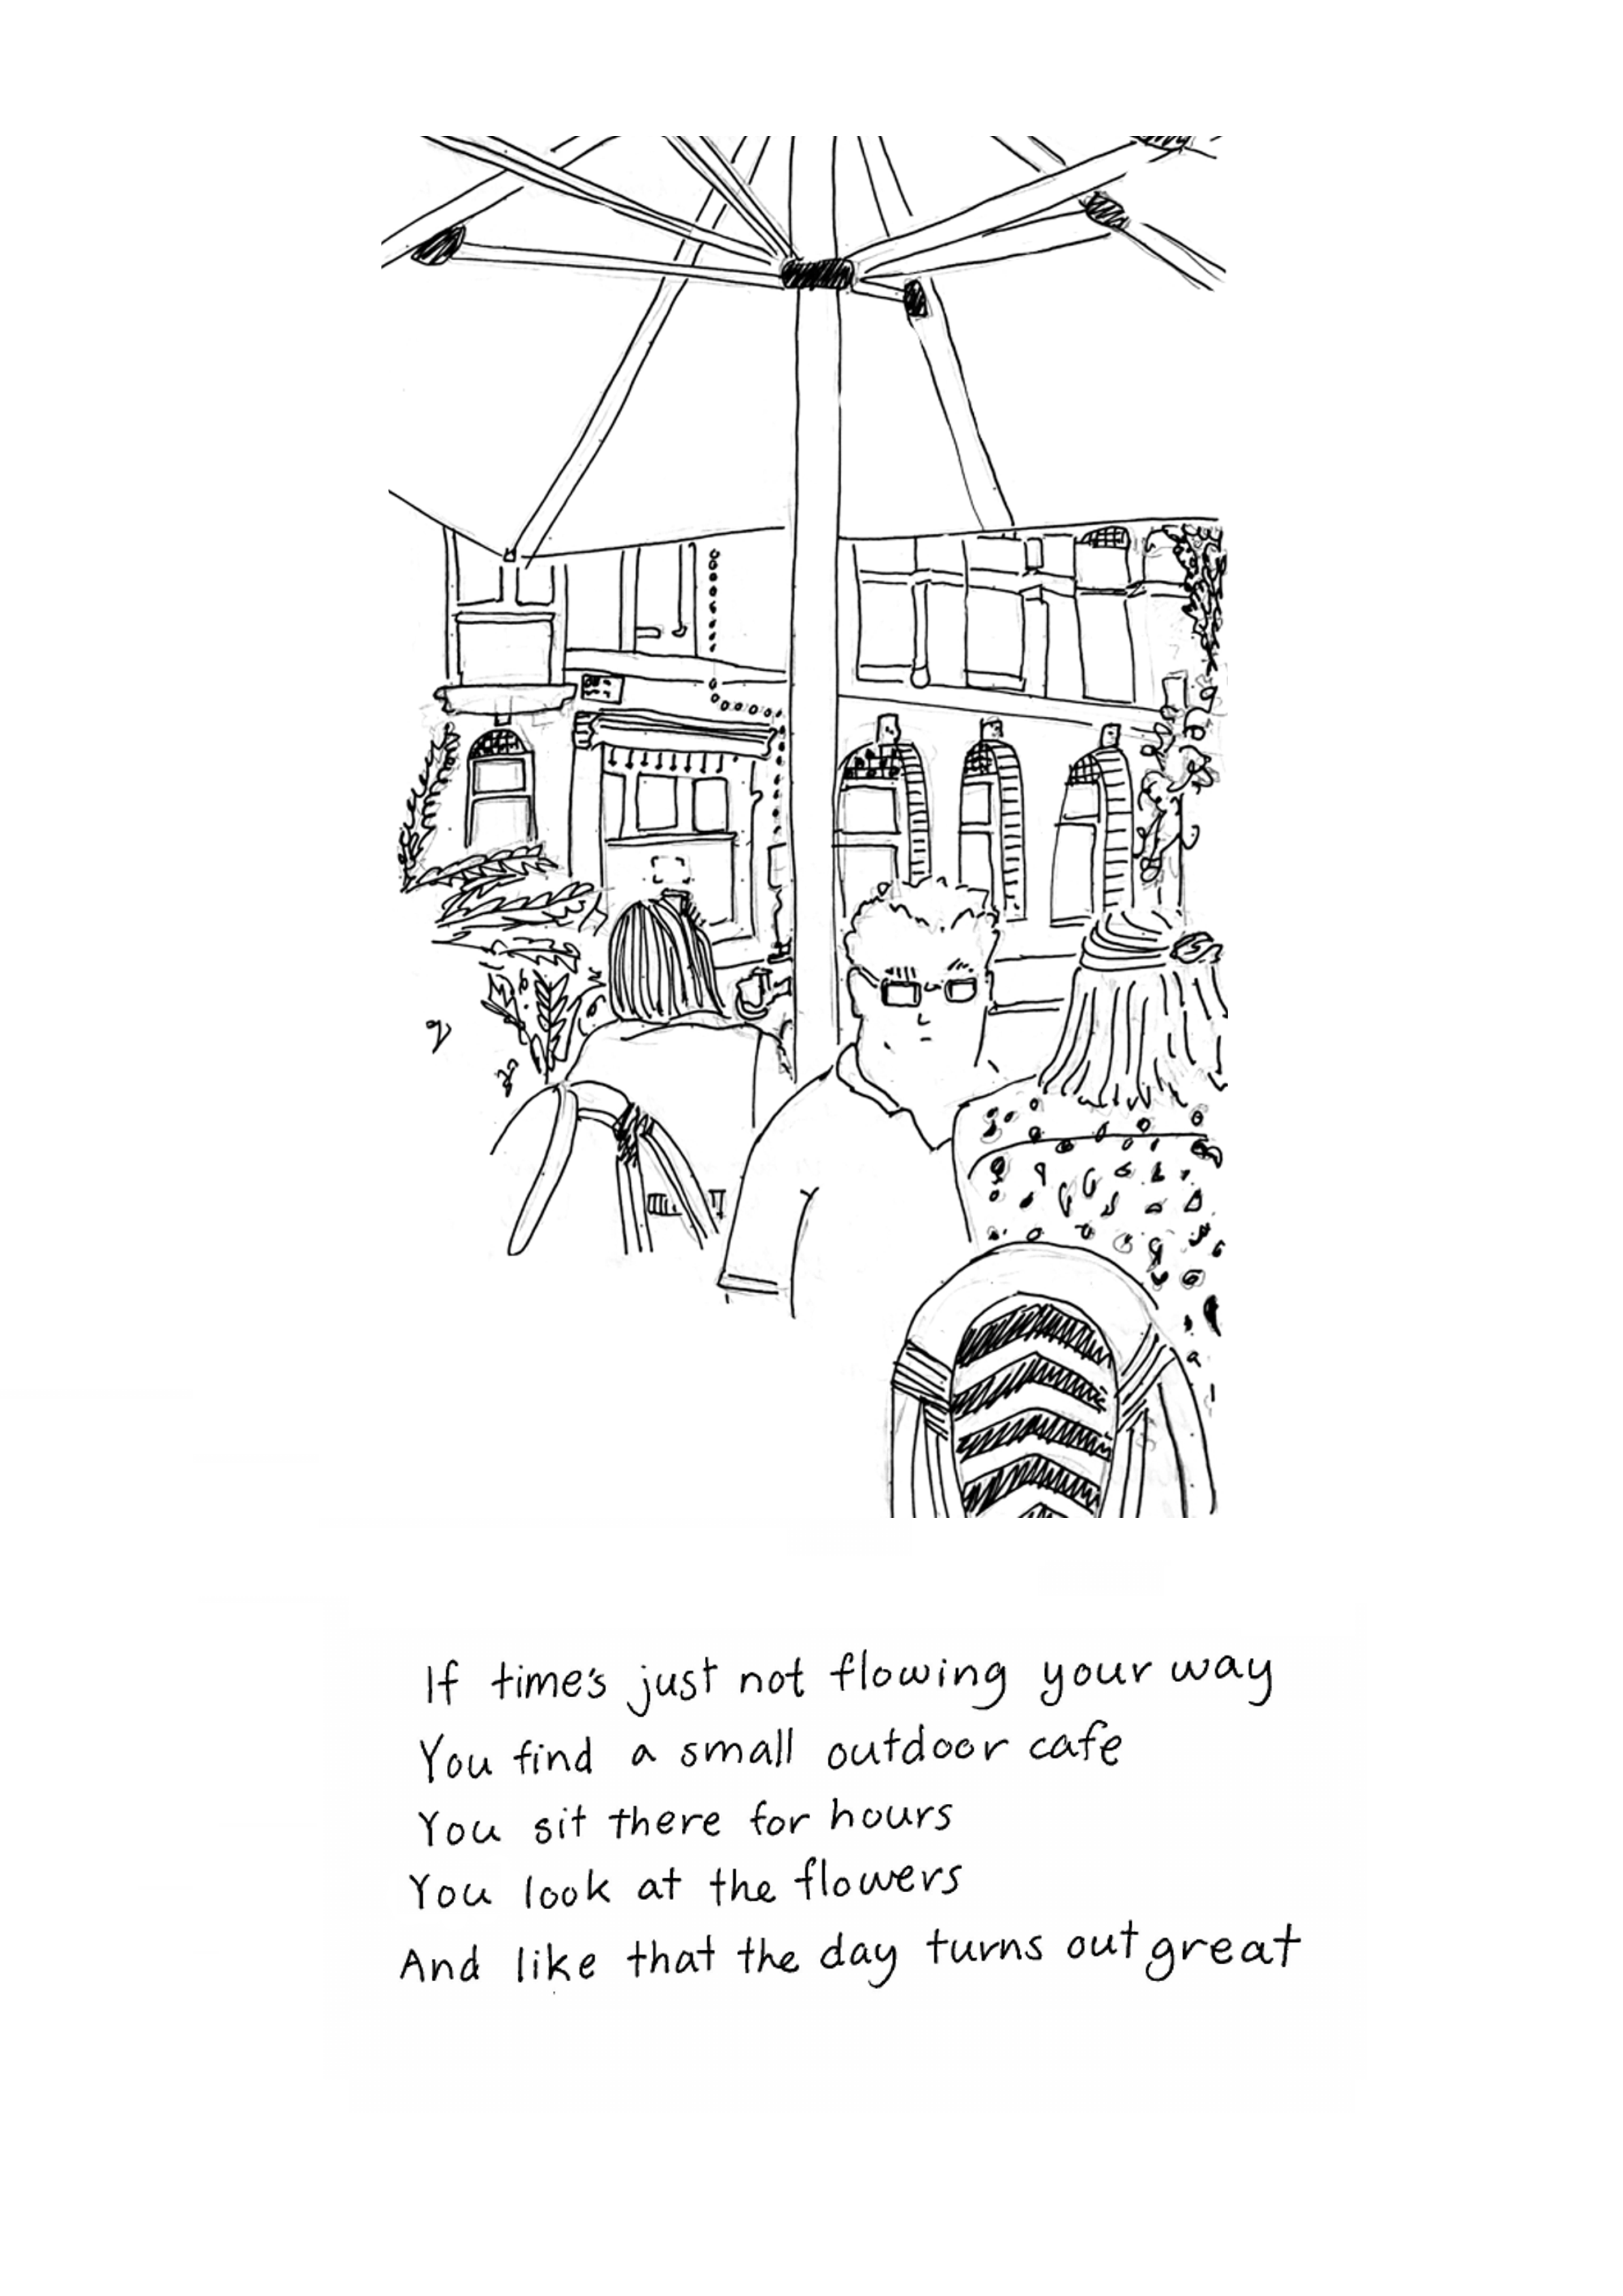 If time's just not flowing your way
You find a small outdoor cafe
You sit there for hours
You look at the flowers
And like that the day turns out great